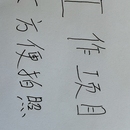 工作项目
方便拍照